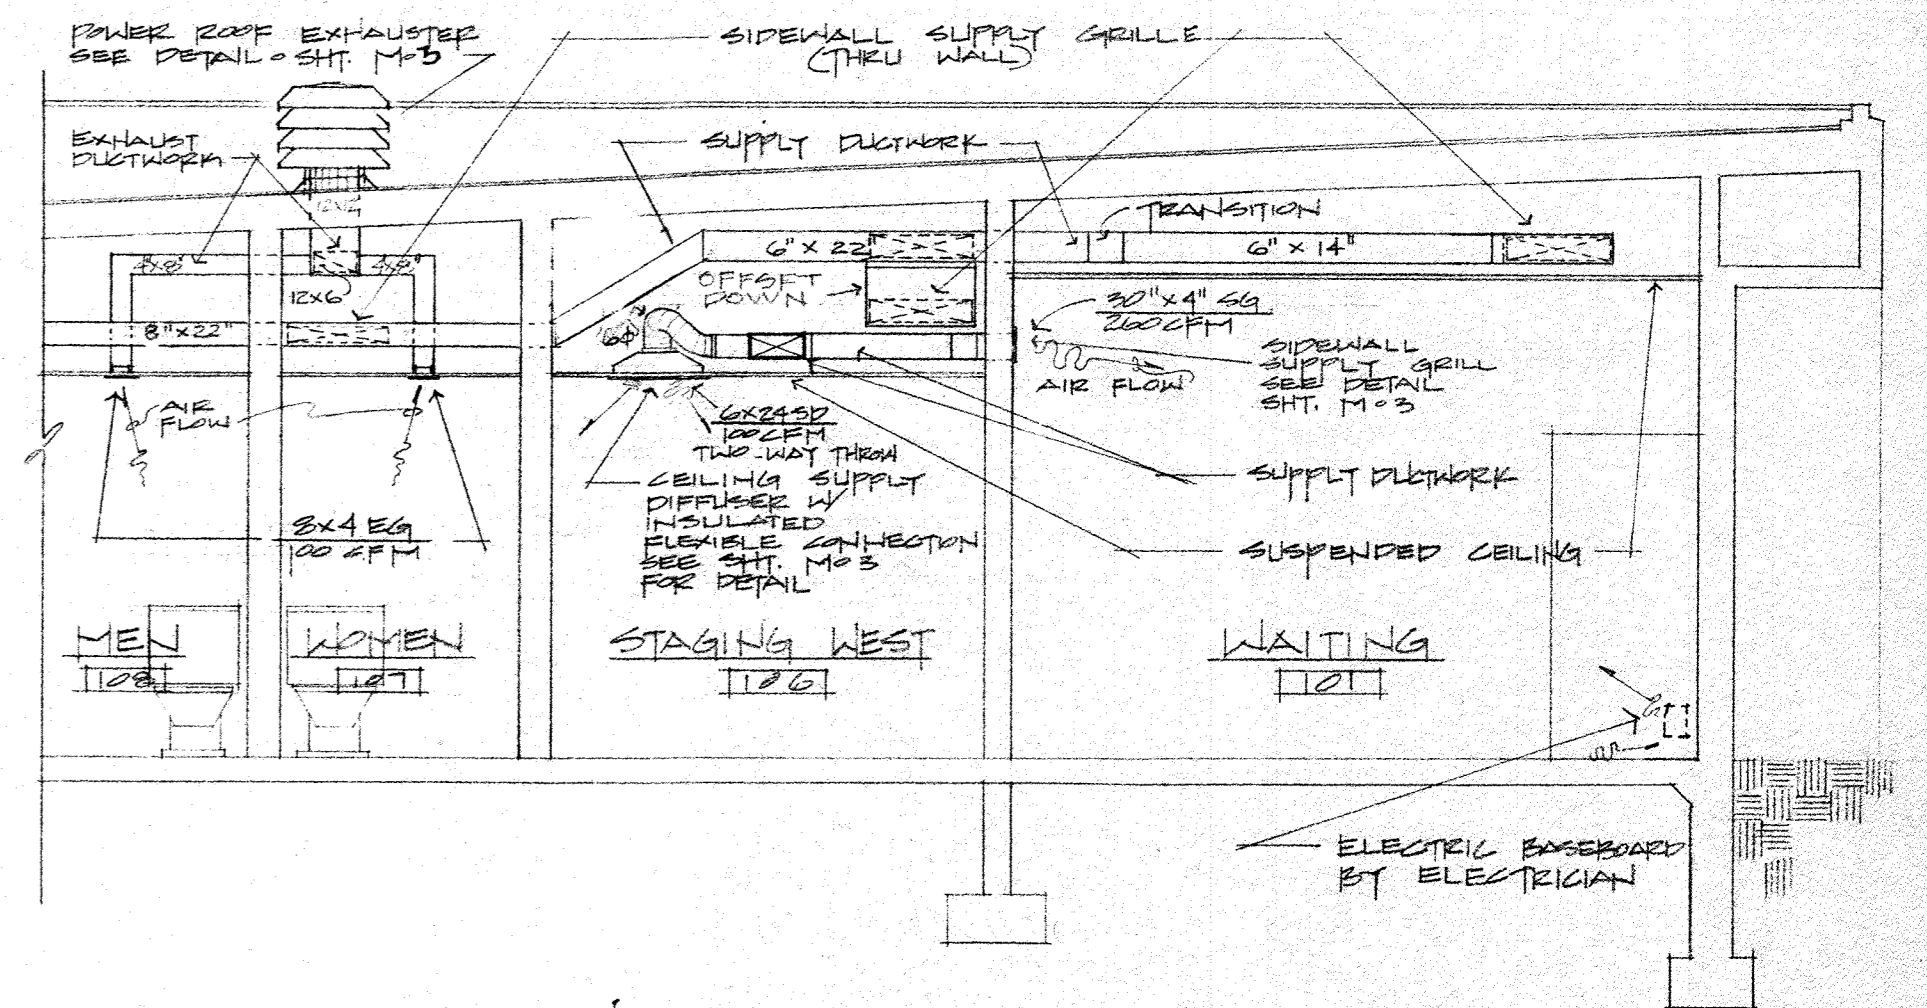 POWER ROOF EXHAUSTER
SEE DETAIL • SHT. M•3
SIDEWALL SUPPLY GRILLE
(THRU WALL)
EXHAUST
DUCTWORK
SUPPLY DUCTWORK
12X12
TRANSITION
4X8"
4X8"
12X6
6" X 22"
6" X 14"
OFFSET
DOWN
8"X22"
6Φ
30"X4" SG
260 CFM
SIDEWALL
SUPPLY GRILL
SEE DETAIL
SHT. M•3
AIR FLOW
AIR
FLOW
6X24SD
100 CFM
TWO-WAY THROW
CEILING SUPPLY
DIFFUSER W/
INSULATED
FLEXIBLE CONNECTION
SEE SHT. M•3
FOR DETAIL
SUPPLY DUCTWORK
8X4 EG
100 CFM
SUSPENDED CEILING
MEN
108
WOMEN
107
STAGING WEST
106
WAITING
101
ELECTRIC BASEBOARD
BY ELECTRICIAN